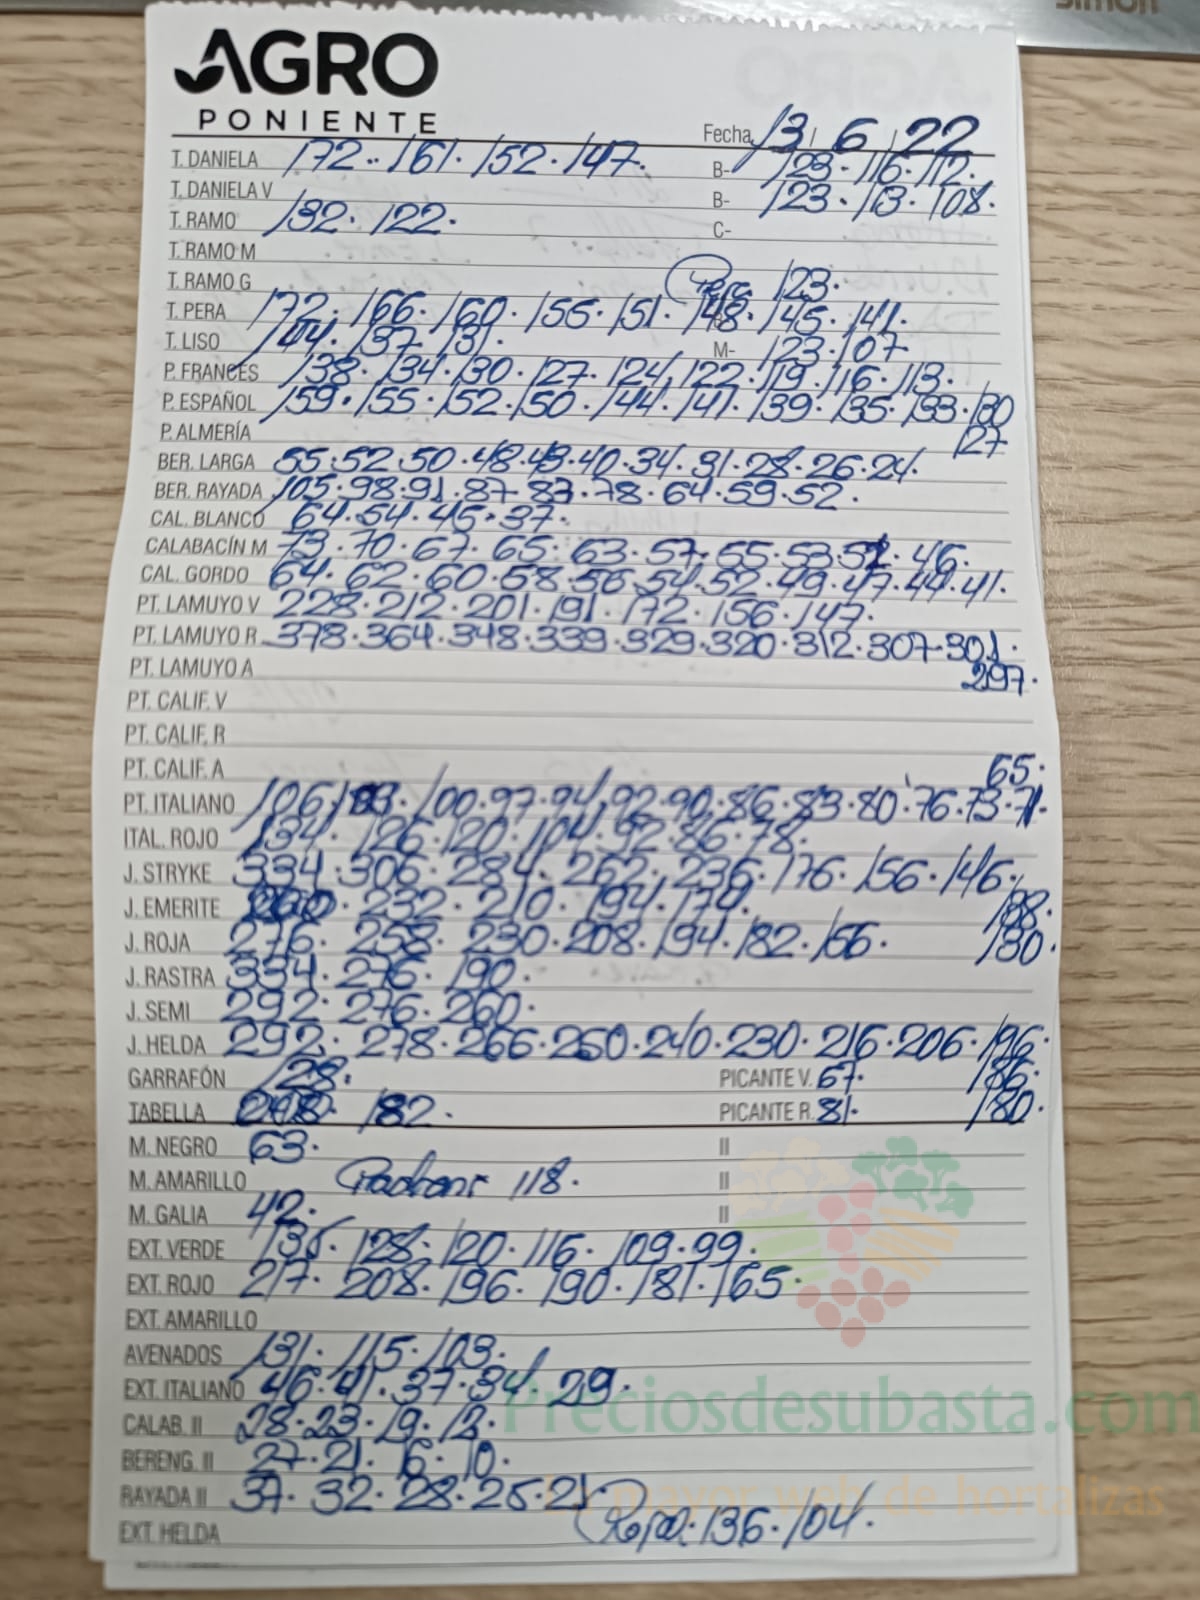 Simon
AGRO
PONIENTE
Fecha 13 / 6 / 22
T. DANIELA 172 · 161 · 152 · 147 · B- 123 · 116 · 112 ·
T. DANIELA V B- 123 · 113 · 108 ·
T. RAMO 132 · 122 · C-
T. RAMO M
T. RAMO G Pera 123 ·
T. PERA 172 · 166 · 160 · 155 · 151 · 148 · 145 · 141 ·
T. LISO 144 · 137 · 131 · M- 123 · 107
P. FRANCÉS 138 · 134 · 130 · 127 · 124 · 122 · 119 · 116 · 113 ·
P. ESPAÑOL 159 · 155 · 152 · 150 · 144 · 141 · 139 · 135 · 133 · 130
P. ALMERÍA 127
BER. LARGA 55 · 52 · 50 · 48 · 43 · 40 · 34 · 31 · 28 · 26 · 24 ·
BER. RAYADA 105 · 98 · 91 · 87 · 83 · 78 · 64 · 59 · 52 ·
CAL. BLANCO 64 · 54 · 45 · 37 ·
CALABACÍN M 73 · 70 · 67 · 65 · 63 · 57 · 55 · 53 · 46 ·
CAL. GORDO 64 · 62 · 60 · 58 · 56 · 54 · 52 · 49 · 47 · 44 · 41 ·
PT. LAMUYO V 228 · 212 · 201 · 191 · 172 · 156 · 147 ·
PT. LAMUYO R 378 · 364 · 348 · 339 · 329 · 320 · 312 · 307 · 301 ·
PT. LAMUYO A 297 ·
PT. CALIF. V
PT. CALIF. R
PT. CALIF. A 65 ·
PT. ITALIANO 106 · 103 · 100 · 97 · 94 · 92 · 90 · 86 · 83 · 80 · 76 · 73 · 71 ·
ITAL. ROJO 134 · 126 · 120 · 104 · 92 · 86 · 78 ·
J. STRYKE 334 · 306 · 284 · 262 · 236 · 176 · 156 · 146 ·
J. EMERITE 232 · 210 · 194 · 174 · 138 ·
J. ROJA 276 · 258 · 230 · 208 · 194 · 182 · 166 · 130 ·
J. RASTRA 334 · 276 · 190 ·
J. SEMI 292 · 276 · 260 ·
J. HELDA 292 · 278 · 266 · 250 · 240 · 230 · 216 · 206 · 196 ·
GARRAFÓN 128 · PICANTE V. 67 · 186 ·
TABELLA 182 · PICANTE R. 81 · 180 ·
M. NEGRO 63 · II
M. AMARILLO 118 · II
M. GALIA 42 · II
EXT. VERDE 135 · 128 · 120 · 116 · 109 · 99 ·
EXT. ROJO 217 · 208 · 196 · 190 · 181 · 165 ·
EXT. AMARILLO
AVENADOS 131 · 115 · 103 ·
EXT. ITALIANO 46 · 41 · 37 · 34 · 29 ·
Preciosdesubasta.com
CALAB. II 28 · 23 · 19 · 12 ·
BERENG. II 27 · 21 · 16 · 10 ·
RAYADA II 37 · 32 · 28 · 25 · 21 ·
La mayor web de hortalizas
EXT. HELDA 136 · 104 ·